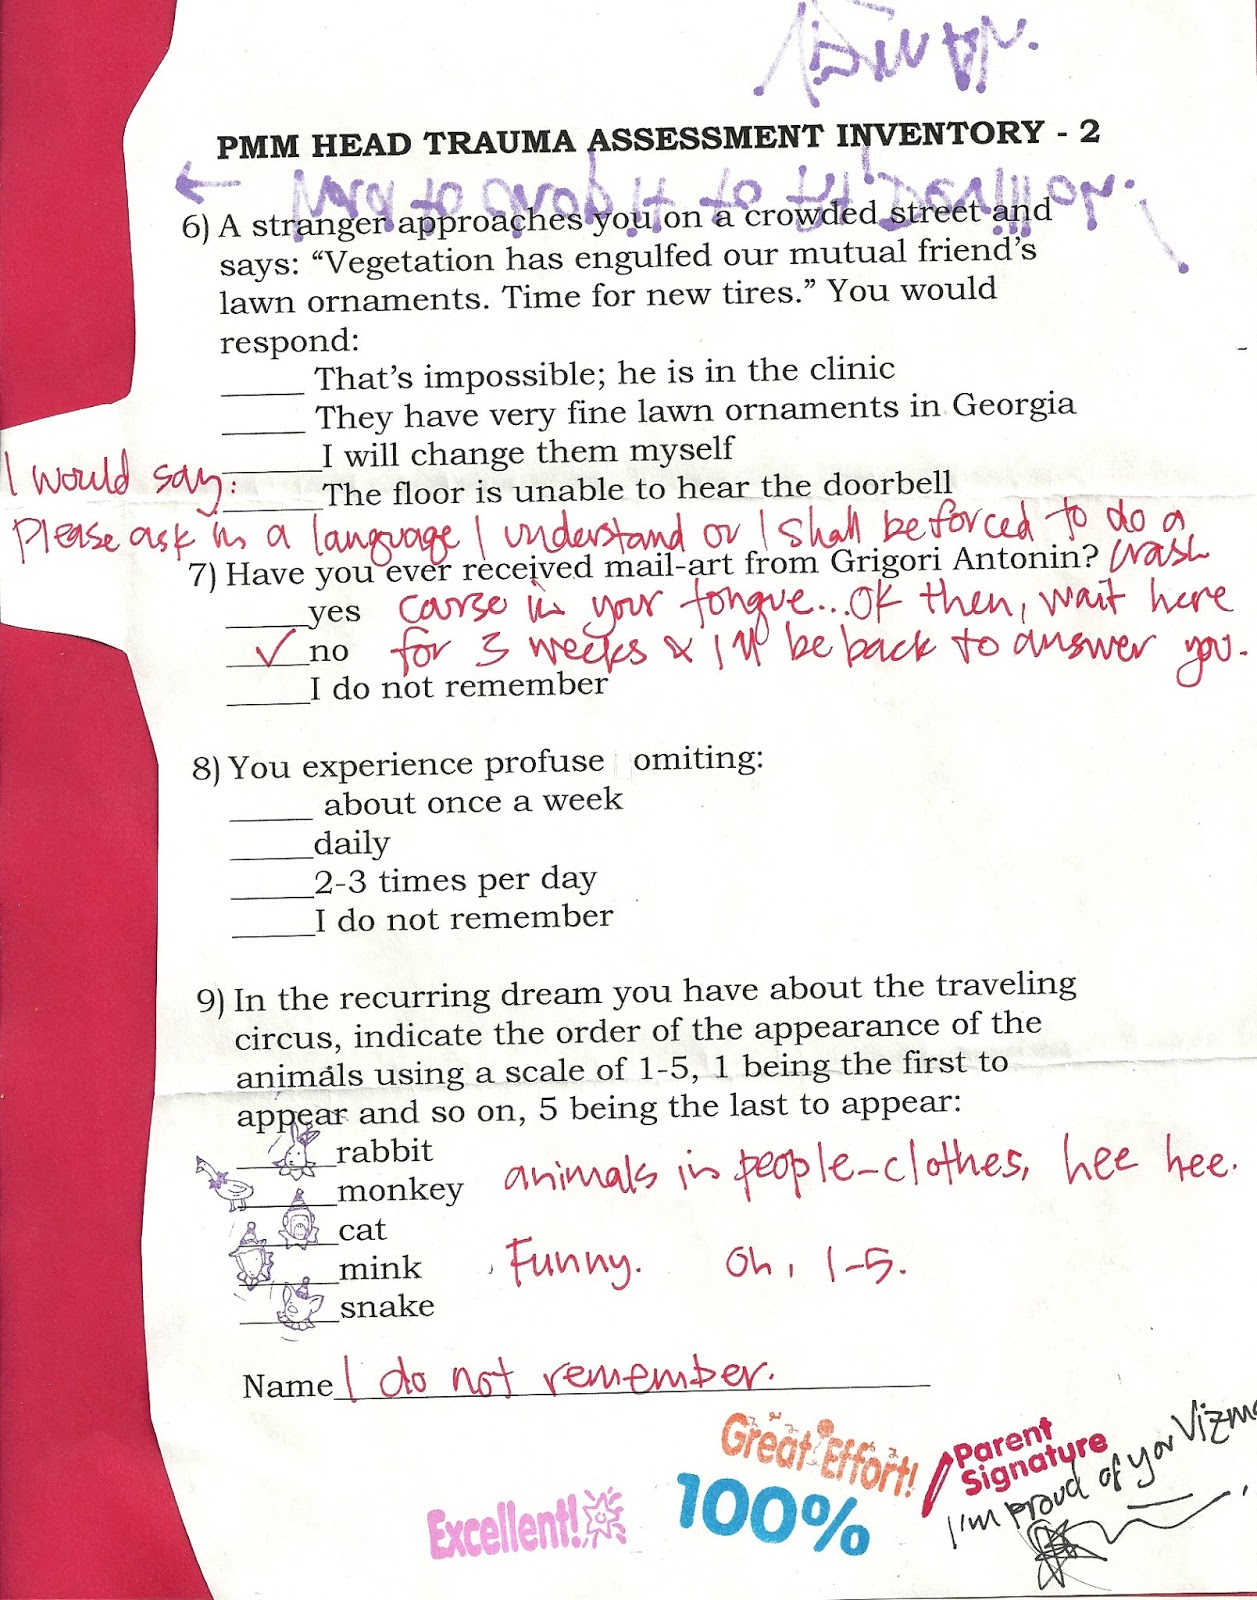 PMM HEAD TRAUMA ASSESSMENT INVENTORY - 2
6) A stranger approaches you on a crowded street and
says: “Vegetation has engulfed our mutual friend’s
lawn ornaments. Time for new tires.” You would
respond:
_____ That’s impossible; he is in the clinic
_____ They have very fine lawn ornaments in Georgia
______I will change them myself
I would say: ______The floor is unable to hear the doorbell
Please ask in a language I understand or I shall be forced to do a
7) Have you ever received mail-art from Grigori Antonin? crash
_____yes course in your tongue...OK then, wait here
__✓__no for 3 weeks & I'll be back to answer you.
_____I do not remember
8) You experience profuse omiting:
_____ about once a week
_____daily
_____2-3 times per day
_____I do not remember
9) In the recurring dream you have about the traveling
circus, indicate the order of the appearance of the
animals using a scale of 1-5, 1 being the first to
appear and so on, 5 being the last to appear:
______rabbit
______monkey animals in people-clothes, hee hee.
______cat
______mink Funny. Oh, 1-5.
______snake
Name I do not remember.
Great Effort!
100%
Excellent!
Parent
Signature
I'm proud of you